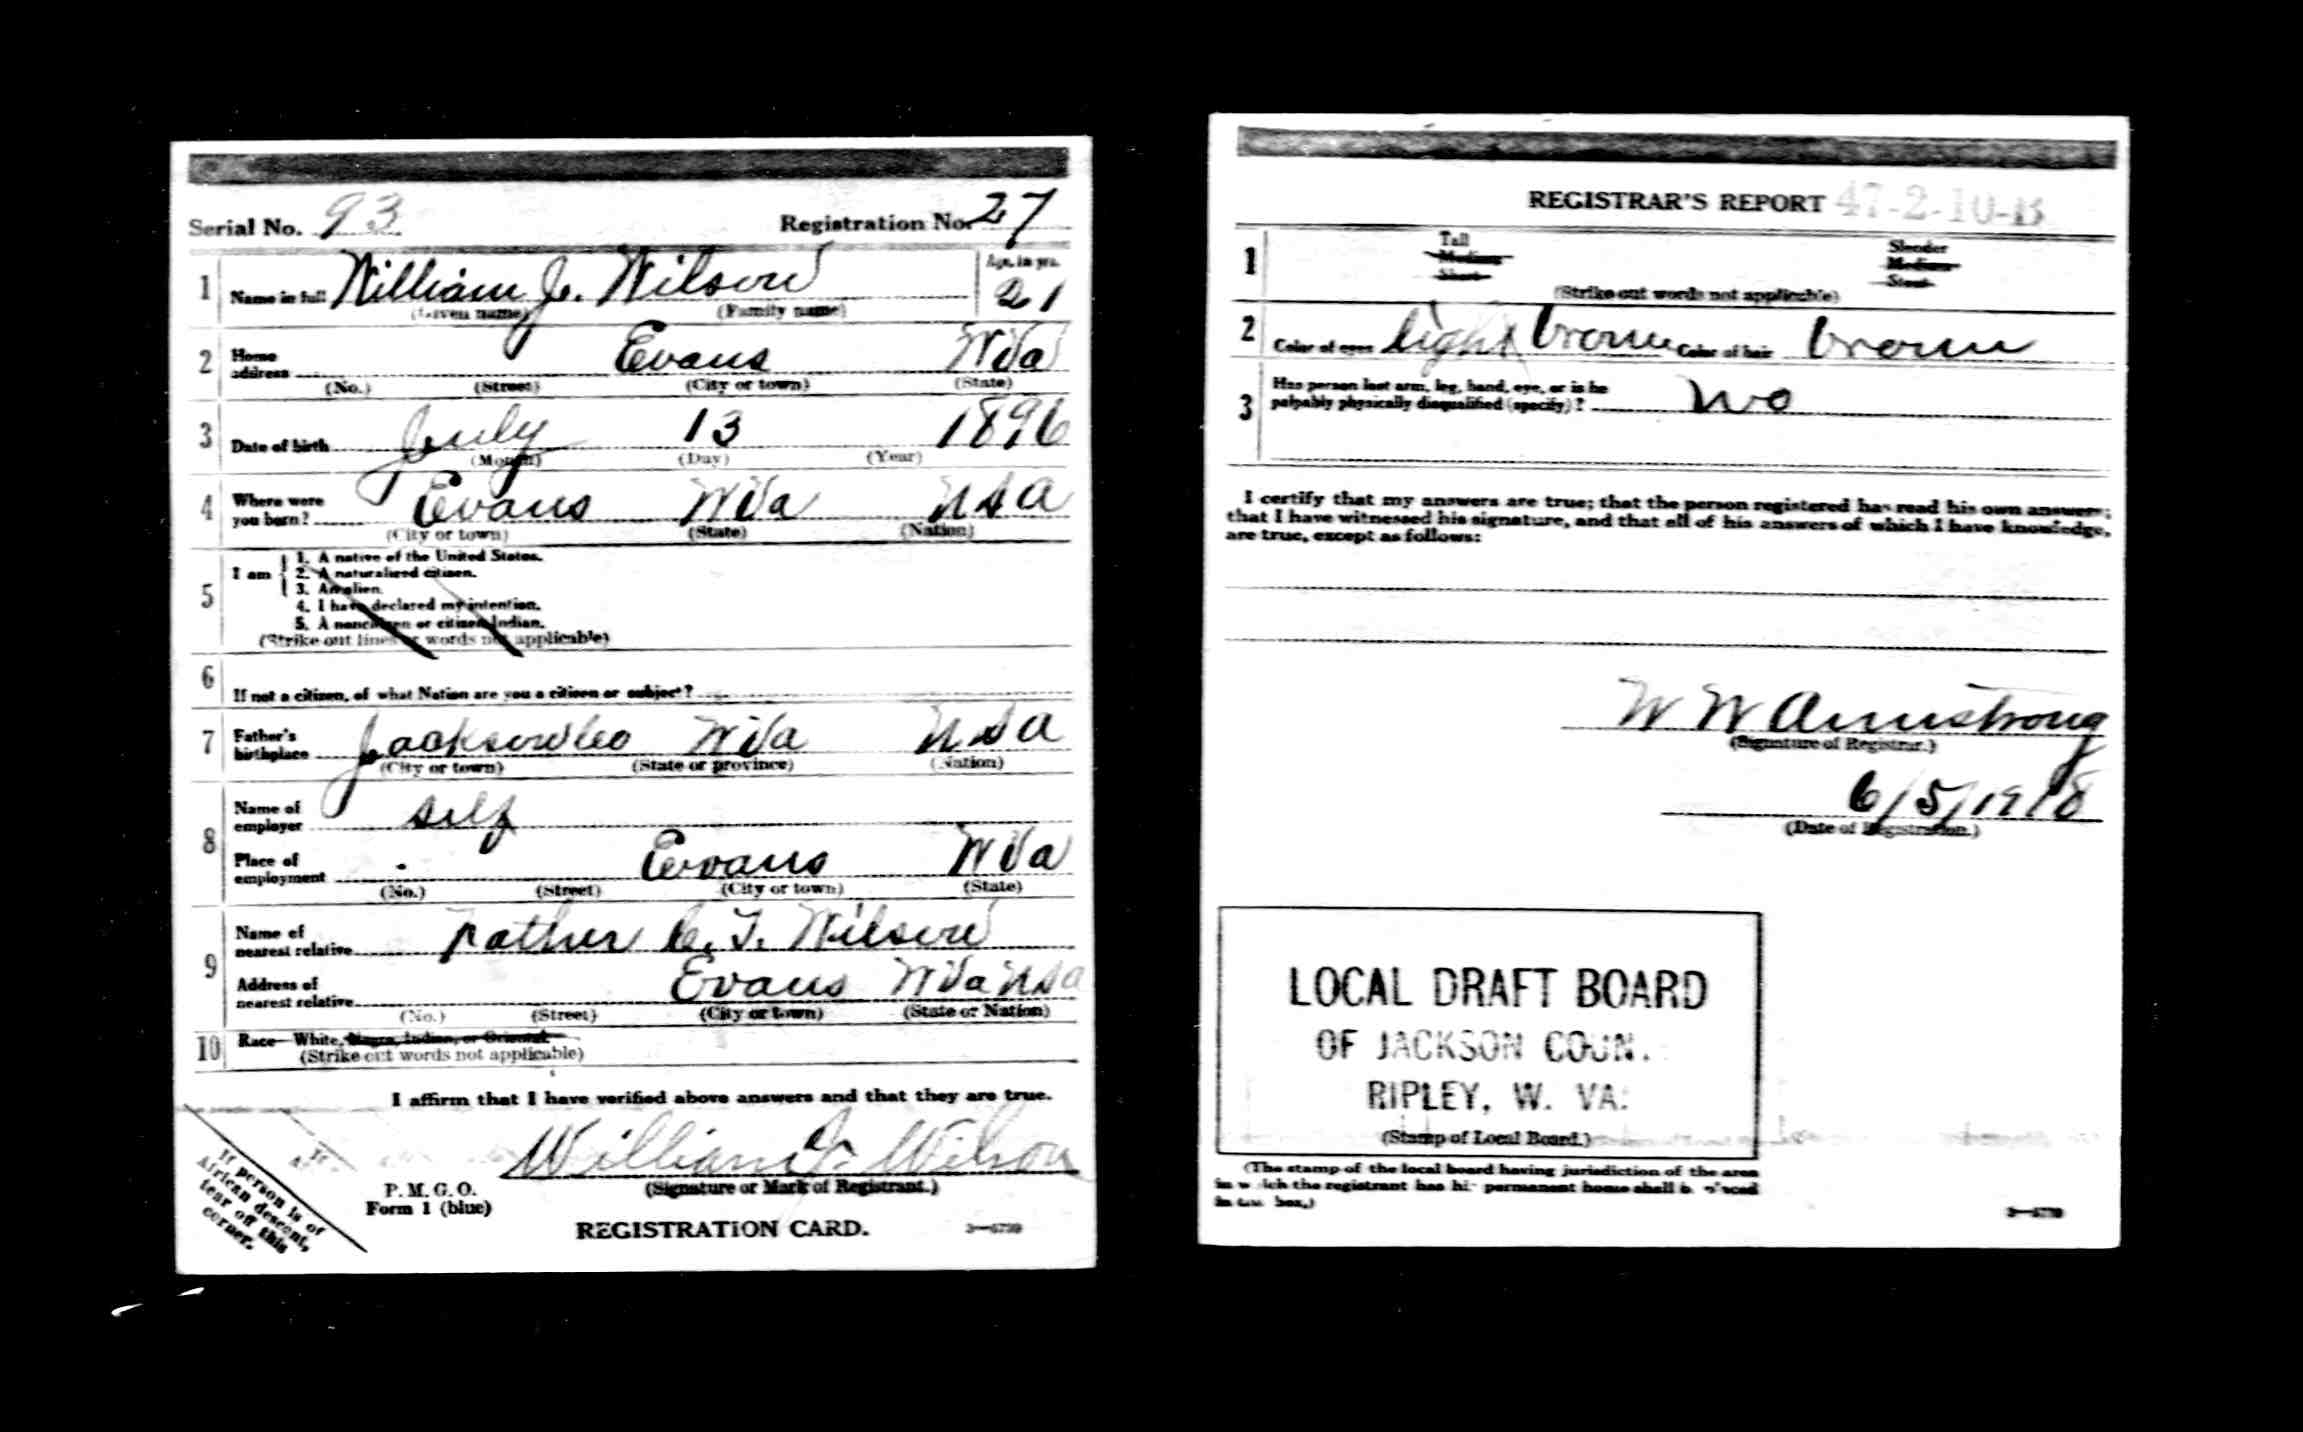 Serial No. 93 Registration No. 27
1 Name in full William J. Wilson Age, in yrs. 21
(Given name) (Family name)
2 Home address Evans WVa
(No.) (Street) (City or town) (State)
3 Date of birth July 13 1896
(Month) (Day) (Year)
4 Where were you born? Evans WVa USA
(City or town) (State) (Nation)
5 I am
1. A native of the United States.
2. A naturalized citizen.
3. An alien.
4. I have declared my intention.
5. A noncitizen or citizen Indian.
(Strike out lines or words not applicable)
6 If not a citizen, of what Nation are you a citizen or subject?
7 Father's birthplace Jackson Co WVa USA
(City or town) (State or province) (Nation)
8 Name of employer self
Place of employment Evans WVa
(No.) (Street) (City or town) (State)
9 Name of nearest relative Father C. T. Wilson
Address of nearest relative Evans WVa USA
(No.) (Street) (City or town) (State or Nation)
10 Race—White, Negro, Indian, or Oriental
(Strike out words not applicable)
I affirm that I have verified above answers and that they are true.
William J. Wilson
(Signature or Mark of Registrant.)
P. M. G. O.
Form 1 (blue)
REGISTRATION CARD.
3—6799
If person is of
African descent,
tear off this
corner.
REGISTRAR'S REPORT 47-2-10-B
1 Tall Slender
Medium Medium
Short Stout
(Strike out words not applicable)
2 Color of eyes light brown Color of hair brown
3 Has person lost arm, leg, hand, eye, or is he
palpably physically disqualified (specify)? No
I certify that my answers are true; that the person registered has read his own answers;
that I have witnessed his signature, and that all of his answers of which I have knowledge,
are true, except as follows:
W W Armstrong
(Signature of Registrar.)
6/5/1918
(Date of Registration.)
LOCAL DRAFT BOARD
OF JACKSON COUN.
RIPLEY, W. VA.
(Stamp of Local Board.)
(The stamp of the local board having jurisdiction of the area
in which the registrant has his permanent home shall be placed
in this box.)